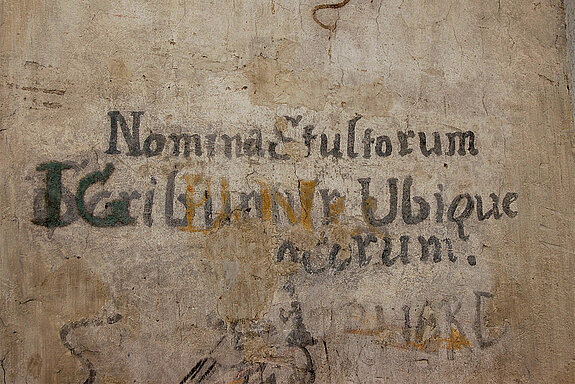 Nomina Stultorum
Scribuntur Ubique
locorum.